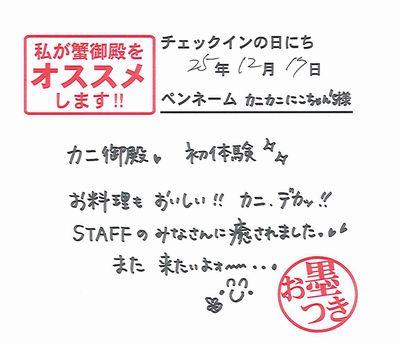 私が蟹御殿を
オススメ
します!!
チェックインの日にち
25年12月19日
ペンネーム カニカニにこちゃんズ様
カニ御殿 初体験
お料理も おいしい!! カニ、デカッ!!
STAFFの みなさんに癒されました。
また 来たいよォー・・・
お墨
つき